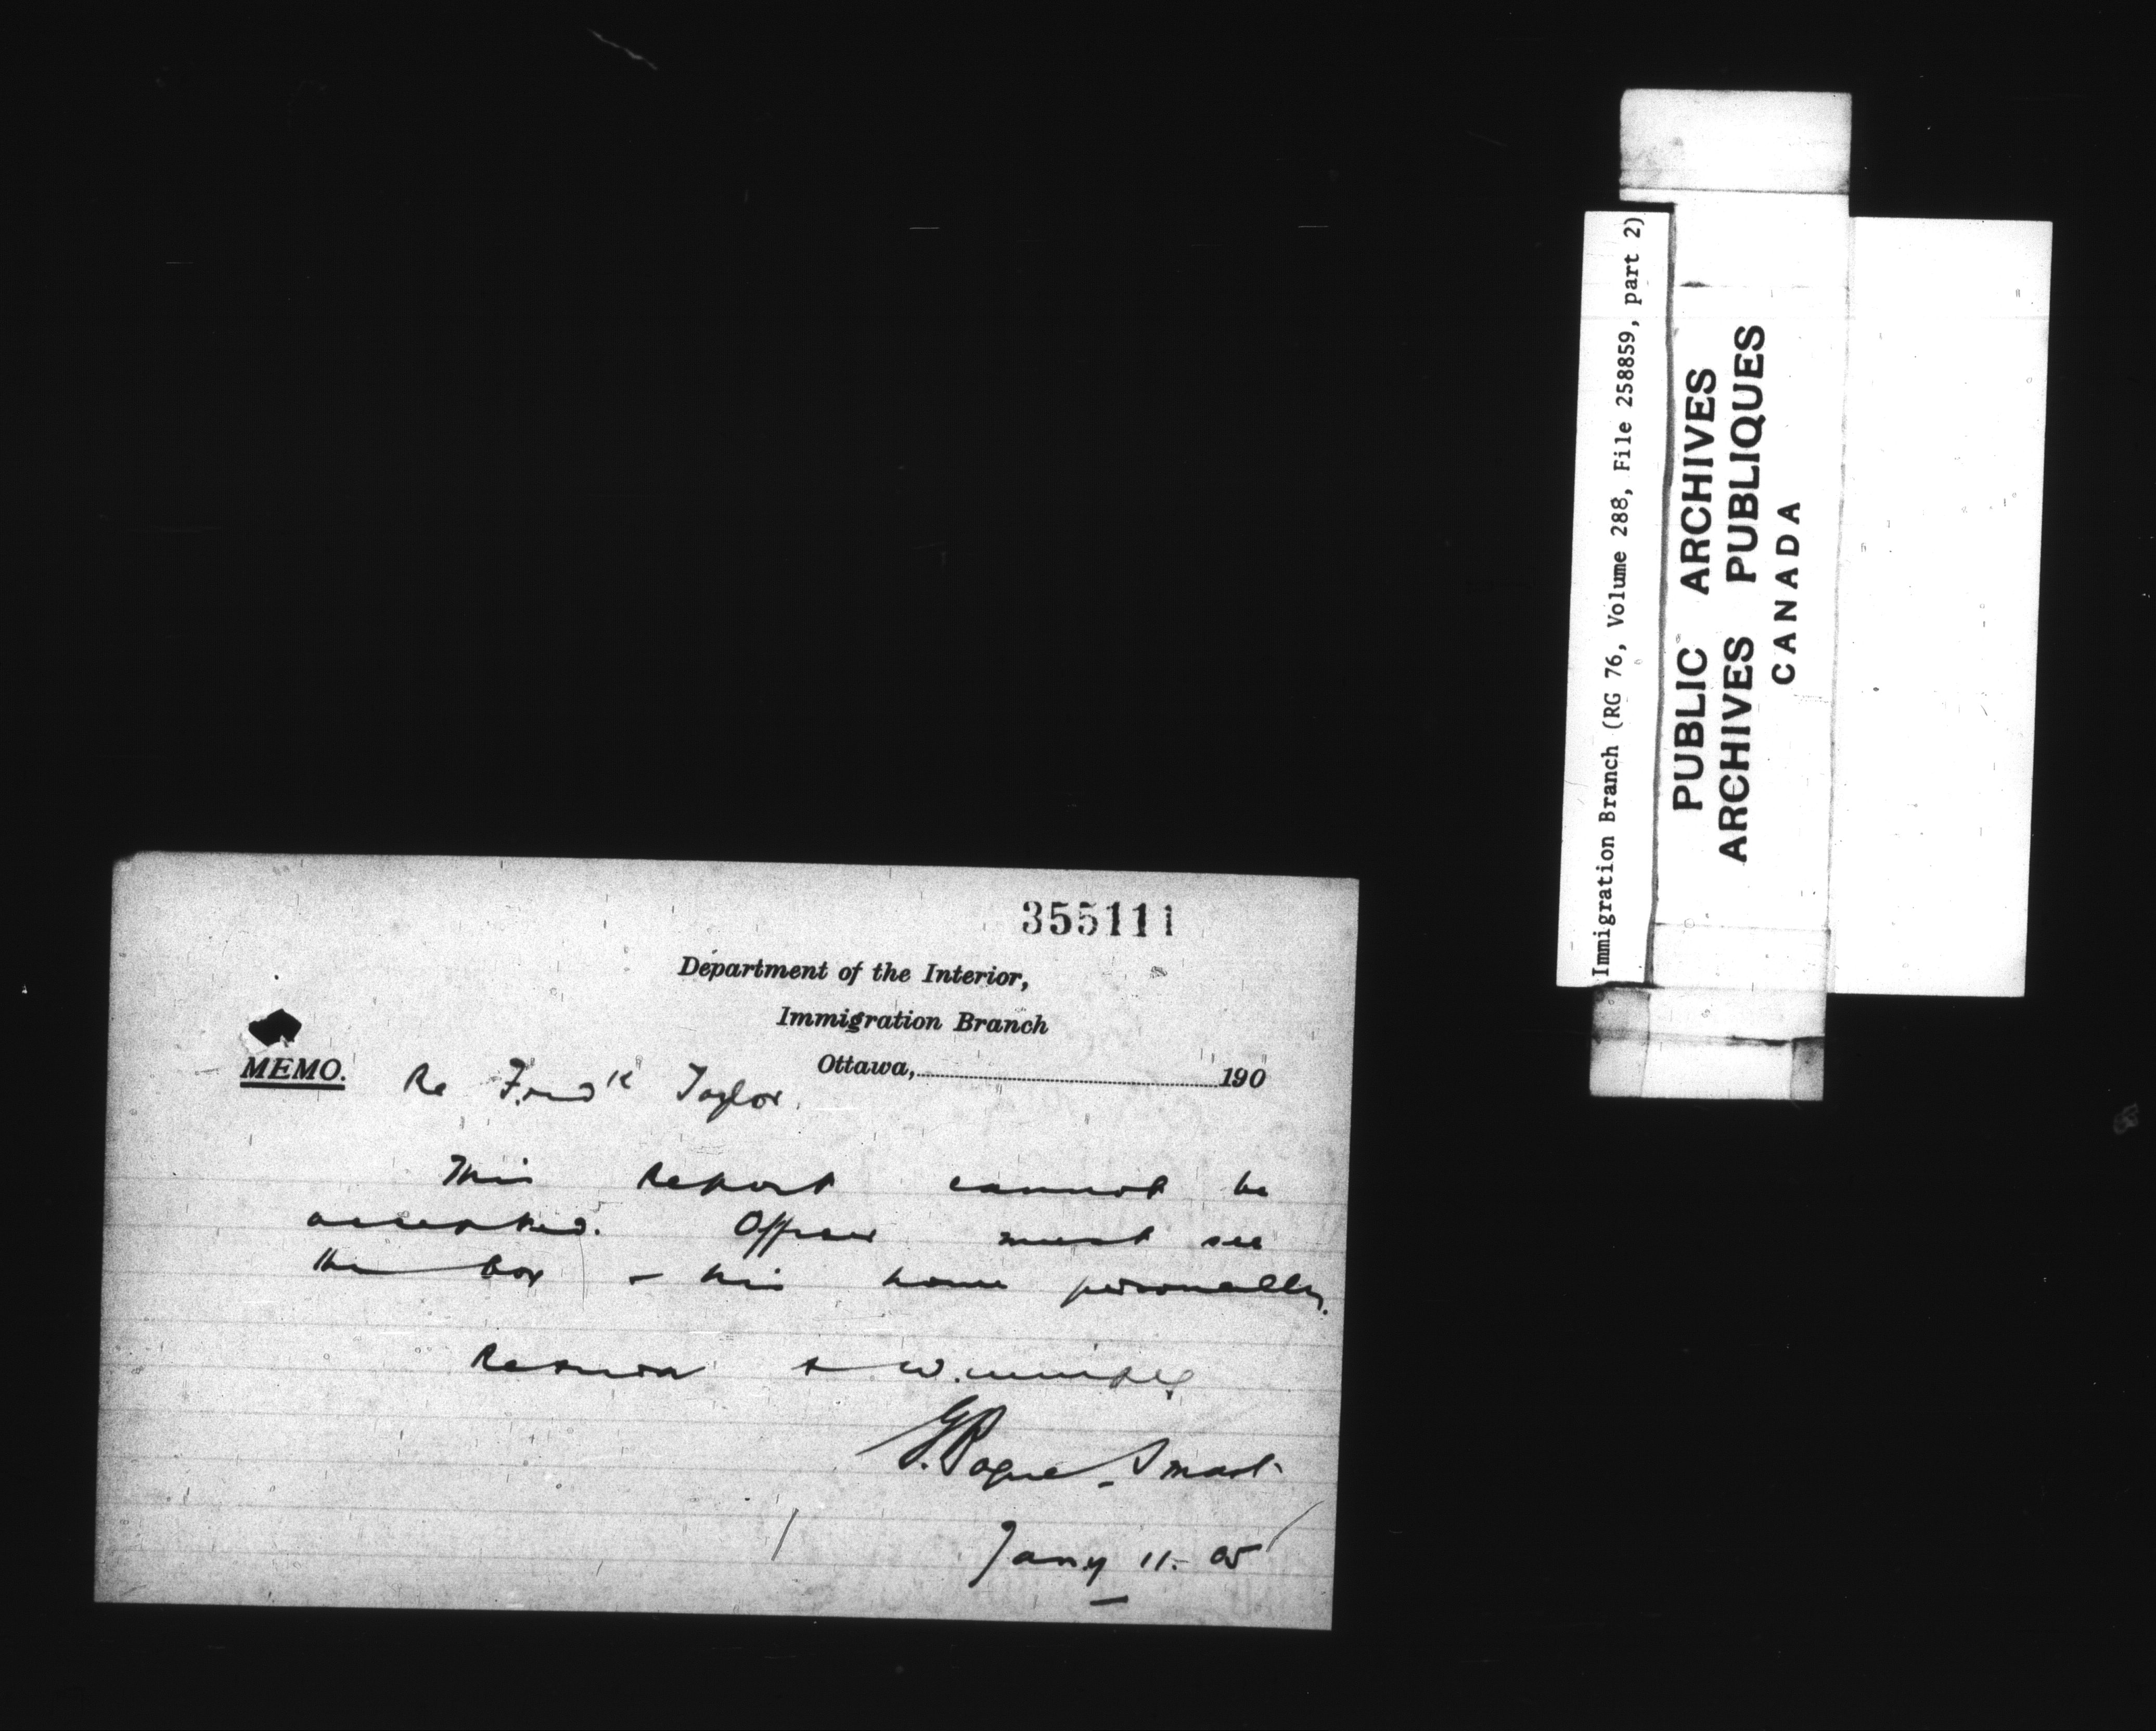 355111
Department of the Interior,
Immigration Branch
Ottawa, 190
MEMO. Re Fred^k Taylor.
This Report cannot be
accepted. Officer must see
the boy & his home personally.
Return to Winnipeg
G. Bogue Smart
Jany 11. 05
Immigration Branch (RG 76, Volume 288, File 258859, part 2)
PUBLIC ARCHIVES
ARCHIVES PUBLIQUES
CANADA